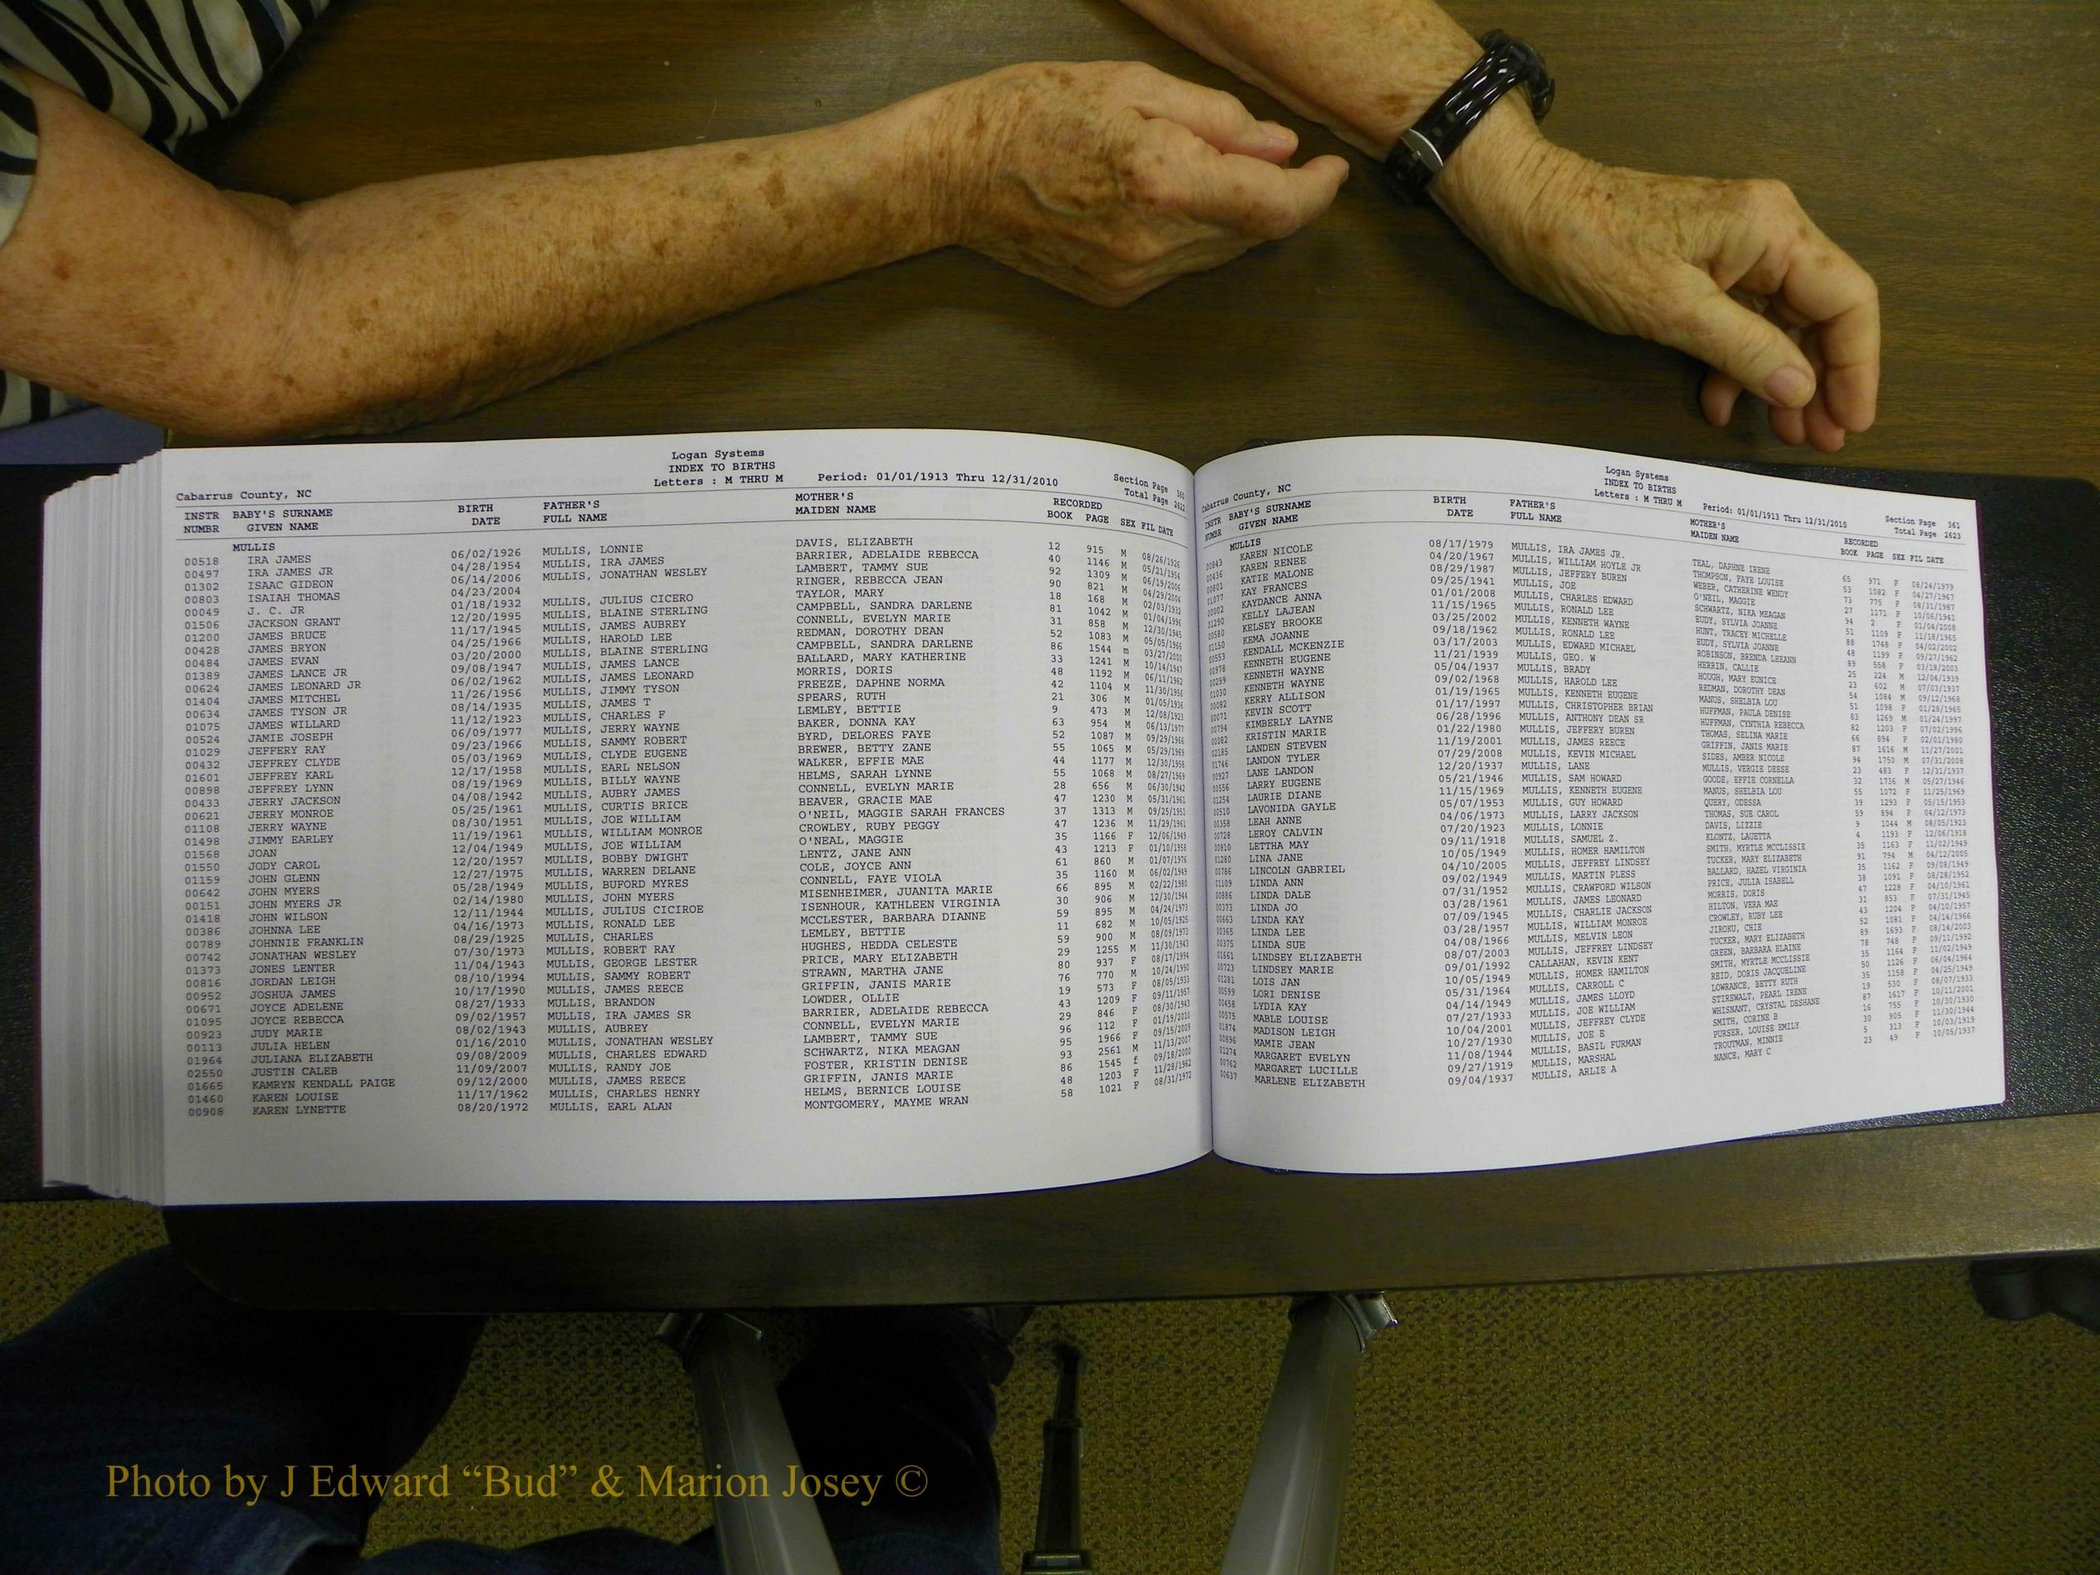 Logan Systems
INDEX TO BIRTHS
Cabarrus County, NC Letters : M THRU M Period: 01/01/1913 Thru 12/31/2010 Section Page 360
Total Page 2623
INSTR BABY'S SURNAME BIRTH FATHER'S MOTHER'S RECORDED
NUMBR GIVEN NAME DATE FULL NAME MAIDEN NAME BOOK PAGE SEX FIL DATE
MULLIS
00518 IRA JAMES 06/02/1926 MULLIS, LONNIE DAVIS, ELIZABETH 12 915 M 08/26/1926
00497 IRA JAMES JR 04/28/1954 MULLIS, IRA JAMES BARRIER, ADELAIDE REBECCA 40 1146 M 05/21/1954
01302 ISAAC GIDEON 06/14/2006 MULLIS, JONATHAN WESLEY LAMBERT, TAMMY SUE 92 1309 M 06/19/2006
00803 ISAIAH THOMAS 04/23/2004 RINGER, REBECCA JEAN 90 821 M 04/29/2004
00049 J. C. JR 01/18/1932 MULLIS, JULIUS CICERO TAYLOR, MARY 18 168 M 02/03/1932
01506 JACKSON GRANT 12/20/1995 MULLIS, BLAINE STERLING CAMPBELL, SANDRA DARLENE 81 1042 M 01/04/1996
01200 JAMES BRUCE 11/17/1945 MULLIS, JAMES AUBREY CONNELL, EVELYN MARIE 31 858 M 12/30/1945
00428 JAMES BRYON 04/25/1966 MULLIS, HAROLD LEE REDMAN, DOROTHY DEAN 52 1083 M 05/05/1966
00484 JAMES EVAN 03/20/2000 MULLIS, BLAINE STERLING CAMPBELL, SANDRA DARLENE 86 1544 m 03/27/2000
01389 JAMES LANCE JR 09/08/1947 MULLIS, JAMES LANCE BALLARD, MARY KATHERINE 33 1241 M 10/14/1947
00624 JAMES LEONARD JR 06/02/1962 MULLIS, JAMES LEONARD MORRIS, DORIS 48 1192 M 06/11/1962
01404 JAMES MITCHEL 11/26/1956 MULLIS, JIMMY TYSON FREEZE, DAPHNE NORMA 42 1104 M 11/30/1956
00634 JAMES TYSON JR 08/14/1935 MULLIS, JAMES T SPEARS, RUTH 21 306 M 01/05/1936
01075 JAMES WILLARD 11/12/1923 MULLIS, CHARLES F LEMLEY, BETTIE 9 473 M 12/08/1923
00524 JAMIE JOSEPH 06/09/1977 MULLIS, JERRY WAYNE BAKER, DONNA KAY 63 954 M 06/13/1977
01029 JEFFERY RAY 09/23/1966 MULLIS, SAMMY ROBERT BYRD, DELORES FAYE 52 1087 M 09/29/1966
00432 JEFFREY CLYDE 05/03/1969 MULLIS, CLYDE EUGENE BREWER, BETTY ZANE 55 1065 M 05/29/1969
01601 JEFFREY KARL 12/17/1958 MULLIS, EARL NELSON WALKER, EFFIE MAE 44 1177 M 12/30/1958
00898 JEFFREY LYNN 08/19/1969 MULLIS, BILLY WAYNE HELMS, SARAH LYNNE 55 1068 M 08/27/1969
00433 JERRY JACKSON 04/08/1942 MULLIS, AUBRY JAMES CONNELL, EVELYN MARIE 28 656 M 06/30/1942
00621 JERRY MONROE 05/25/1961 MULLIS, CURTIS BRICE BEAVER, GRACIE MAE 47 1230 M 05/31/1961
01108 JERRY WAYNE 08/30/1951 MULLIS, JOE WILLIAM O'NEIL, MAGGIE SARAH FRANCES 37 1313 M 09/25/1951
01498 JIMMY EARLEY 11/19/1961 MULLIS, WILLIAM MONROE CROWLEY, RUBY PEGGY 47 1236 M 11/29/1961
01568 JOAN 12/04/1949 MULLIS, JOE WILLIAM O'NEAL, MAGGIE 35 1166 F 12/06/1949
01550 JODY CAROL 12/20/1957 MULLIS, BOBBY DWIGHT LENTZ, JANE ANN 43 1213 F 01/10/1958
01159 JOHN GLENN 12/27/1975 MULLIS, WARREN DELANE COLE, JOYCE ANN 61 860 M 01/07/1976
00642 JOHN MYERS 05/28/1949 MULLIS, BUFORD MYRES CONNELL, FAYE VIOLA 35 1160 M 06/02/1949
00151 JOHN MYERS JR 02/14/1980 MULLIS, JOHN MYERS MISENHEIMER, JUANITA MARIE 66 895 M 02/22/1980
01418 JOHN WILSON 12/11/1944 MULLIS, JULIUS CICIROE ISENHOUR, KATHLEEN VIRGINIA 30 906 M 12/30/1944
00386 JOHNNA LEE 04/16/1973 MULLIS, RONALD LEE MCCLESTER, BARBARA DIANNE 59 895 M 04/24/1973
00789 JOHNNIE FRANKLIN 08/29/1925 MULLIS, CHARLES LEMLEY, BETTIE 11 682 M 10/05/1925
00742 JONATHAN WESLEY 07/30/1973 MULLIS, ROBERT RAY HUGHES, HEDDA CELESTE 59 900 M 08/09/1973
01373 JONES LENTER 11/04/1943 MULLIS, GEORGE LESTER PRICE, MARY ELIZABETH 29 1255 M 11/30/1943
00816 JORDAN LEIGH 08/10/1994 MULLIS, SAMMY ROBERT STRAWN, MARTHA JANE 80 937 F 08/17/1994
00952 JOSHUA JAMES 10/17/1990 MULLIS, JAMES REECE GRIFFIN, JANIS MARIE 76 770 M 10/24/1990
00671 JOYCE ADELENE 08/27/1933 MULLIS, BRANDON LOWDER, OLLIE 19 573 F 08/05/1933
01095 JOYCE REBECCA 09/02/1957 MULLIS, IRA JAMES SR BARRIER, ADELAIDE REBECCA 43 1209 F 09/11/1957
00923 JUDY MARIE 08/02/1943 MULLIS, AUBREY CONNELL, EVELYN MARIE 29 846 F 08/30/1943
00113 JULIA HELEN 01/16/2010 MULLIS, JONATHAN WESLEY LAMBERT, TAMMY SUE 96 112 F 01/19/2010
01964 JULIANA ELIZABETH 09/08/2009 MULLIS, CHARLES EDWARD SCHWARTZ, NIKA MEAGAN 95 1966 F 09/15/2009
02550 JUSTIN CALEB 11/09/2007 MULLIS, RANDY JOE FOSTER, KRISTIN DENISE 93 2561 M 11/13/2007
01665 KAMRYN KENDALL PAIGE 09/12/2000 MULLIS, JAMES REECE GRIFFIN, JANIS MARIE 86 1545 f 09/18/2000
01460 KAREN LOUISE 11/17/1962 MULLIS, CHARLES HENRY HELMS, BERNICE LOUISE 48 1203 F 11/28/1962
00908 KAREN LYNETTE 08/20/1972 MULLIS, EARL ALAN MONTGOMERY, MAYME WRAN 58 1021 F 08/31/1972
Logan Systems
INDEX TO BIRTHS
Cabarrus County, NC Letters : M THRU M Period: 01/01/1913 Thru 12/31/2010 Section Page 361
Total Page 2623
INSTR BABY'S SURNAME BIRTH FATHER'S MOTHER'S RECORDED
NUMBR GIVEN NAME DATE FULL NAME MAIDEN NAME BOOK PAGE SEX FIL DATE
MULLIS
00843 KAREN NICOLE 08/17/1979 MULLIS, IRA JAMES JR. TEAL, DAPHNE IRENE 65 971 F 08/24/1979
00436 KAREN RENEE 04/20/1967 MULLIS, WILLIAM HOYLE JR THOMPSON, FAYE LOUISE 53 1082 F 04/27/1967
00801 KATIE MALONE 08/29/1987 MULLIS, JEFFERY BUREN WEBER, CATHERINE WENDY 73 775 F 08/31/1987
01077 KAY FRANCES 09/25/1941 MULLIS, JOE O'NEIL, MAGGIE 27 1171 F 10/06/1941
00002 KAYDANCE ANNA 01/01/2008 MULLIS, CHARLES EDWARD SCHWARTZ, NIKA MEAGAN 94 2 F 01/04/2008
01290 KELLY LAJEAN 11/15/1965 MULLIS, RONALD LEE EUDY, SYLVIA JOANNE 51 1109 F 11/18/1965
00580 KELSEY BROOKE 03/25/2002 MULLIS, KENNETH WAYNE HUNT, TRACEY MICHELLE 88 1748 F 04/02/2002
01150 KEMA JOANNE 09/18/1962 MULLIS, RONALD LEE EUDY, SYLVIA JOANNE 48 1199 F 09/27/1962
00553 KENDALL MCKENZIE 03/17/2003 MULLIS, EDWARD MICHAEL ROBINSON, BRENDA LEEANN 89 558 F 03/18/2003
00978 KENNETH EUGENE 11/21/1939 MULLIS, GEO. W HERRIN, CALLIE 25 224 M 12/04/1939
00299 KENNETH WAYNE 05/04/1937 MULLIS, BRADY HOUGH, MARY EUNICE 23 602 M 07/03/1937
01030 KENNETH WAYNE 09/02/1968 MULLIS, HAROLD LEE REDMAN, DOROTHY DEAN 54 1084 M 09/12/1968
00082 KERRY ALLISON 01/19/1965 MULLIS, KENNETH EUGENE MANUS, SHELBIA LOU 51 1098 F 01/28/1965
00071 KEVIN SCOTT 01/17/1997 MULLIS, CHRISTOPHER BRIAN HUFFMAN, PAULA DENISE 83 1269 M 01/24/1997
00794 KIMBERLY LAYNE 06/28/1996 MULLIS, ANTHONY DEAN SR HUFFMAN, CYNTHIA REBECCA 82 1203 F 07/02/1996
00082 KRISTIN MARIE 01/22/1980 MULLIS, JEFFERY BUREN THOMAS, SELINA MARIE 66 894 F 02/01/1980
02185 LANDEN STEVEN 11/19/2001 MULLIS, JAMES REECE GRIFFIN, JANIS MARIE 87 1616 M 11/27/2001
01746 LANDON TYLER 07/29/2008 MULLIS, KEVIN MICHAEL SIDES, AMBER NICOLE 94 1750 M 07/31/2008
00927 LANE LANDON 12/20/1937 MULLIS, LANE MULLIS, VERGIE DEESE 23 483 F 12/31/1937
00556 LARRY EUGENE 05/21/1946 MULLIS, SAM HOWARD GOODE, EFFIE CORNELLA 32 1736 M 05/27/1946
01254 LAURIE DIANE 11/15/1969 MULLIS, KENNETH EUGENE MANUS, SHELBIA LOU 55 1072 F 11/25/1969
00510 LAVONIDA GAYLE 05/07/1953 MULLIS, GUY HOWARD QUERY, ODESSA 39 1293 F 05/15/1953
00358 LEAH ANNE 04/06/1973 MULLIS, LARRY JACKSON THOMAS, SUE CAROL 59 894 F 04/12/1973
00728 LEROY CALVIN 07/20/1923 MULLIS, LONNIE DAVIS, LIZZIE 9 1044 M 08/05/1923
00810 LETTHA MAY 09/11/1918 MULLIS, SAMUEL Z. KLONTZ, LAUETTA 4 1193 F 12/06/1918
01280 LINA JANE 10/05/1949 MULLIS, HOMER HAMILTON SMITH, MYRTLE MCCLISSIE 35 1163 F 11/02/1949
00786 LINCOLN GABRIEL 04/10/2005 MULLIS, JEFFREY LINDSEY TUCKER, MARY ELIZABETH 91 794 M 04/12/2005
01109 LINDA ANN 09/02/1949 MULLIS, MARTIN PLESS BALLARD, HAZEL VIRGINIA 35 1162 F 09/08/1949
00886 LINDA DALE 07/31/1952 MULLIS, CRAWFORD WILSON PRICE, JULIA ISABELL 38 1091 F 08/28/1952
00373 LINDA JO 03/28/1961 MULLIS, JAMES LEONARD MORRIS, DORIS 47 1228 F 04/10/1961
00663 LINDA KAY 07/09/1945 MULLIS, CHARLIE JACKSON HILTON, VERA MAE 31 853 F 07/31/1945
00365 LINDA LEE 03/28/1957 MULLIS, WILLIAM MONROE CROWLEY, RUBY LEE 43 1204 F 04/10/1957
00375 LINDA SUE 04/08/1966 MULLIS, MELVIN LEON JIROKU, CHIE 52 1081 F 04/14/1966
01661 LINDSEY ELIZABETH 08/07/2003 MULLIS, JEFFREY LINDSEY TUCKER, MARY ELIZABETH 89 1693 F 08/14/2003
00723 LINDSEY MARIE 09/01/1992 CALLAHAN, KEVIN KENT GREEN, BARBARA ELAINE 78 748 F 09/11/1992
01281 LOIS JAN 10/05/1949 MULLIS, HOMER HAMILTON SMITH, MYRTLE MCCLISSIE 35 1164 F 11/02/1949
00599 LORI DENISE 05/31/1964 MULLIS, CARROLL C REID, DORIS JACQUELINE 50 1126 F 06/04/1964
00458 LYDIA KAY 04/14/1949 MULLIS, JAMES LLOYD LOWRANCE, BETTY RUTH 35 1158 F 04/25/1949
00575 MABLE LOUISE 07/27/1933 MULLIS, JOE WILLIAM STIREWALT, PEARL IRENE 19 530 F 08/07/1933
01874 MADISON LEIGH 10/04/2001 MULLIS, JEFFREY CLYDE WHISNANT, CRYSTAL DESHANE 87 1617 F 10/11/2001
00896 MAMIE JEAN 10/27/1930 MULLIS, JOE E SMITH, CORINE B 16 755 F 10/30/1930
01274 MARGARET EVELYN 11/08/1944 MULLIS, BASIL FURMAN PURSER, LOUISE EMILY 30 905 F 11/30/1944
00762 MARGARET LUCILLE 09/27/1919 MULLIS, MARSHAL TROUTMAN, MINNIE 5 313 F 10/03/1919
00637 MARLENE ELIZABETH 09/04/1937 MULLIS, ARLIE A NANCE, MARY C 23 49 F 10/05/1937
Photo by J Edward “Bud” & Marion Josey ©